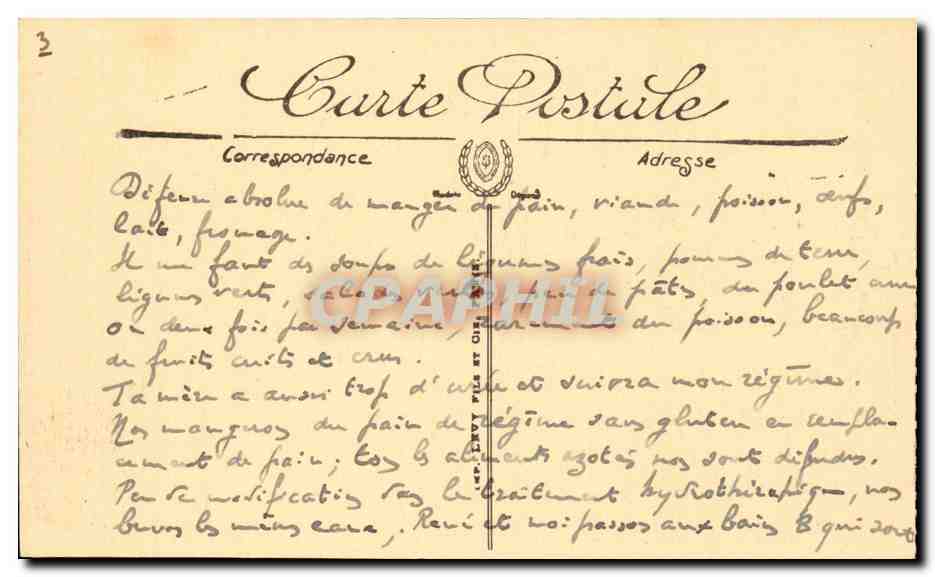 3
Carte Postale
Correspondance
Adresse
Modèle Déposé
Défense absolue de manger du pain, viande, poisson, œufs,
lait, fromage.
Il me faut des soupes de légumes frais, pommes de terre,
légumes verts, salades de pâtes, du poulet une
ou deux fois par semaine, rarement du poisson, beaucoup
de fruits cuits et crus.
Ta mère a aussi trop d'urée et suivra mon régime.
Nous mangerons du pain de régime sans gluten en rempla-
cement de pain; tous les aliments azotés nous sont défendus.
Peu de modification dans le traitement hydrothérapique, nous
buvons les mêmes eaux, René et moi passons aux bains B qui sont
IMP. LÉVY FILS ET CIE, PARIS.
CPAPHIL